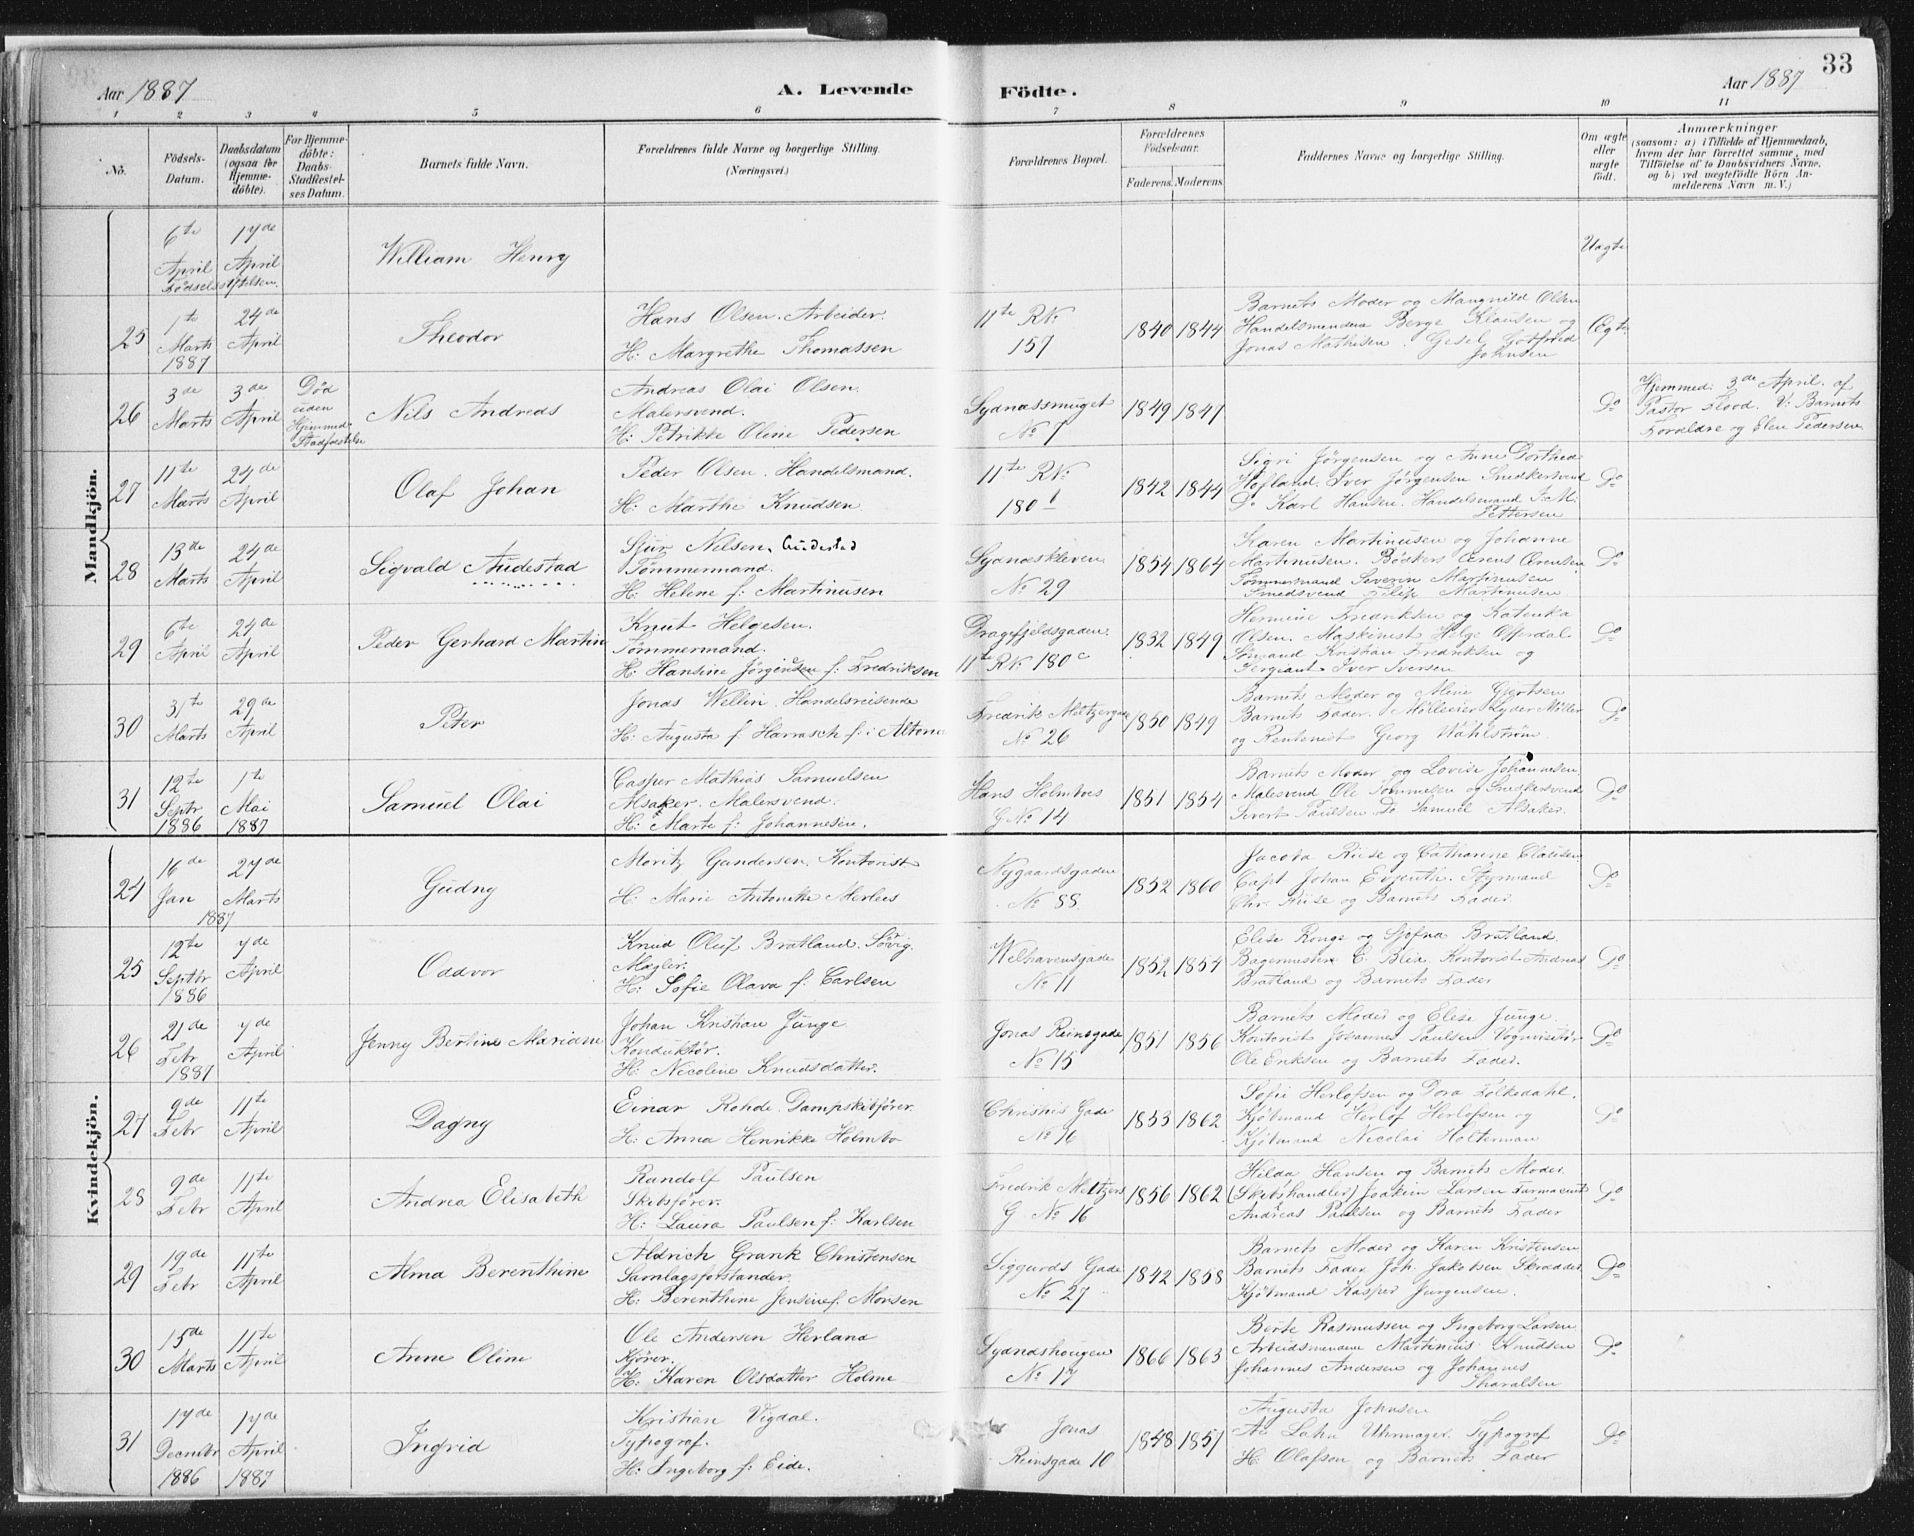 Aar 1887
A. Levende
Födte.
Aar 1887
33
1 2 3 4 5 6 7 8 9 10 11
No.
Födsels-Datum.
Daabsdatum (ogsaa for Hjemmedöbte).
For Hjemmedöbte: Daabs-Stadfæstelses Datum.
Barnets fulde Navn.
Forældrenes fulde Navne og borgerlige Stilling. (Næringsvei.)
Forældrenes Bopæl.
Forældrenes Födselsaar.
Faderens. Moderens.
Faddernes Navne og borgerlige Stilling.
Om ægte eller uægte födt.
Anmærkninger
(saasom: a) i Tilfælde af Hjemmedaab, hvem der har forrettet samme, med Tilföielse af to Daabsvidners Navne, og b) ved uægtefödte Börn Anmelderens Navn m. V.)
Mandkjön.
6te April
17de April
William Henry
Uægte
25
1te Marts 1887
24de April
Theodor
Hans Olsen. Arbeider.
H: Margrethe Thomassen
11te RN: 157
1840 1844
Barnets Moder og Mangnild Olsen
Handelsmændene Berge Klausen og
Jonas Mathesen. Gesel Gotfried
Johnsen
Ægte
26
3de Marts
3de April
Død uden Hjemmed: Stadfæstelse
Nils Andreas
Andreas Olai Olsen.
Malersvend.
H: Petrikke Oline Pedersen
Sydnæssmuget No 7
1849 1847
Do
Hjemmed: 3de April. af
Pastor Flood. V: Barnets
Forældre og Elen Pedersen
27
11te Marts
24de April
Olaf Johan
Peder Olsen. Handelsmand.
H: Marthe Knudsen
11te RN: 180
1842 1844
Sigri Jørgensen og Anne Dorthea
Høfland. Iver Jørgensen Snedkersvend
Do Karl Hansen. Handelsmand J. M.
Pettersen
Do
28
13de Marts
24de April
Sigvald Audestad
Sjur Nilsen. Audestad
Tømmermand.
H: Helene f: Martinusen
Sydnæskleven No 29
1854 1864
Karen Martinusen og Johanne
Martinusen. Bødkers
Tømmermand Severin Martinusen
Smedsvend Filip Martinusen
Do
29
6te April
24de April
Peder Gerhard Martin
Knut Helgesen.
Tømmermand.
H: Hansine Jørgensen f: Fredriksen
Dragefjeldsgaden. 11te RN: 180c
1832 1849
Hermine Fredriksen og Katinka
Olsen. Maskinist Helge Offerdal
Sømand Kristian Fredriksen og
Sergiant Iver Iversen
Do
30
31te Marts
29de April
Peter
Jonas Wellin. Handelsreisende
H: Augusta f Harrasch f: i Altona
Fredrik Meltzergade No 26
1850 1849
Barnets Moder og Mine Gjertsen
Barnets Fader. Lyder Møller
og Rentenist Georg Wahlstrøm
Do
31
12te Septr 1886
1te Mai 1887
Samuel Olai
Casper Mathias Samuelsen
Alsaker. Malersvend.
H: Marte f: Johannesen.
Hans Holmboes G No 14
1851 1854
Barnets Moder og Lovise Johannesen
Malesvend Ole Tommesen og Snedkersvend
Sivert Paulsen Do Samuel Alsaker.
Do
Kvindekjön.
24
16de Jan 1887
27de Marts
Gudny
Moritz Gundersen. Kontorist
H: Marie Antonette Merlees
Nygaardsgaden No 88
1852 1860
Jacova Riise og Catharine Clausen
Capt Johan Evjenth. Styrmand
Chr. Riise og Barnets Fader.
Do
25
12te Septbr 1886
7de April
Oddvor
Knud Oluf Bratland
Mægler.
H: Sofie Olava f: Carlsen
Welhavensgade No 11
1852 1854
Elise Ronge og Sjofna Bratland.
Bagermester C. Blix. Kontorist Andreas
Bratland og Barnets Fader
Do
26
21de Febr 1887
7de April
Jenny Bertine Mariane
Johan Kristian Junge
Konduktør.
H: Nicoline Knudsdatter.
Jonas Reinsgade No 15
1851 1856
Barnets Moder og Elese Junge.
Kontorist Johannes Paulsen Vognvisitør
Ole Eriksen og Barnets Fader.
Do
27
9de Febr
11te April
Dagny
Einar Rohde. Dampskibfører.
H: Anna Henrikke Holmbo
Christies Gade No 16
1853 1862
Sofie Herlofsen og Dora Folkedahl.
Kjøbmand Herlof Herlofsen og
Kjøbmand Nicolai Holterman
Do
28
9de Febr
11te April
Andrea Elisabeth
Randolf Paulsen
Skibsfører.
H: Laura Paulsen f: Karlsen
Fredrik Meltzers G No 16
1856 1862
Hilda Hansen og Barnets Moder.
(Skibshandler) Joakim Larsen Farmaceut
Andreas Paulsen og Barnets Fader
Do
29
19de Febr
11te April
Alma Berenthine
Aldrich Grank Christensen
Samlagsforstander.
H: Berenthine Jensine f: Monsen
Siggurds Gade No 27
1842 1858
Barnets Moder og Karen Kristensen
Barnets Fader Joh. Jakobsen Skrædder
Kjøbmand Kasper Jurgensen.
Do
30
15de Marts
11te April
Anne Oline
Ole Andersen Herland
Kjører.
H: Karen Olsdatter Holme
Sydnæshougen No 17
1866 1863
Berte Rasmussen og Ingeborg Larsen
Arbeidsmændene Martinius Knudsen
Johannes Andersen og Johannes
Tharalsen
Do
31
17de Decembr 1886
17de April 1887
Ingrid
Kristian Vigdal.
Typograf.
H: Ingeborg f: Eide.
Jonas Reinsgade 10
1848 1851
Augusta Johnsen
Lahn Uhrmager. Typograf
H. Olafson og Barnets Fader
Do